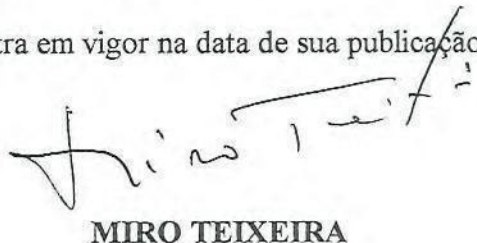 tra em vigor na data de sua publicação
Miro Teixei
MIRO TEIXEIRA